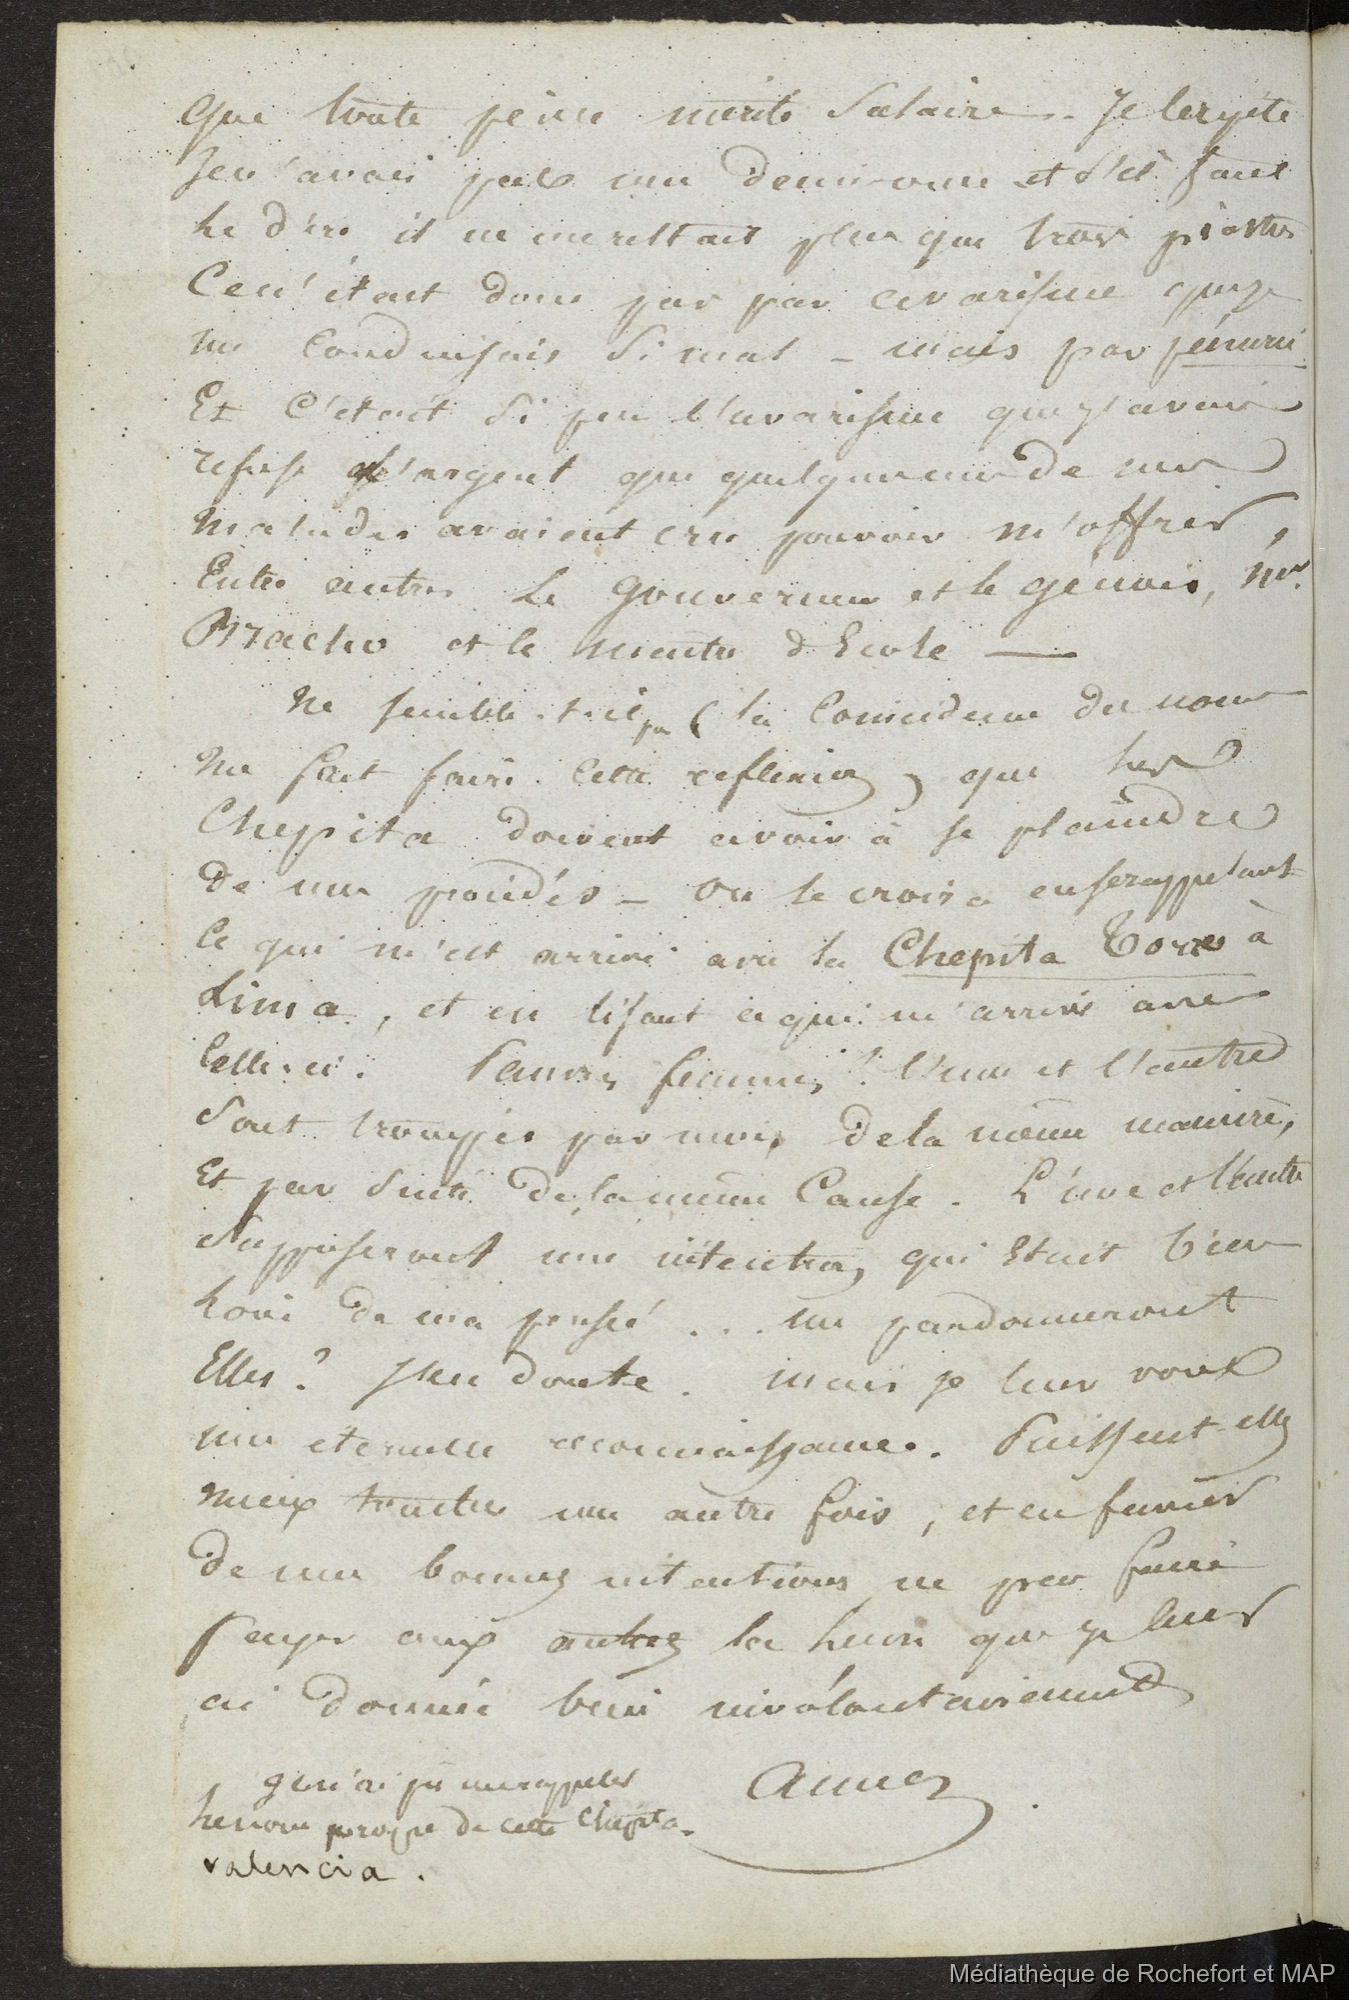 que toute peine mérite Salaire. Je le repéte
Je n'avais pas une demi-once et s'il faut
le dire il ne me restait plus que trois piastres
Ce n'était donc pas par avarisme que je
me Conduisais Si mal - mais par pénurie
Et C'était Si peu l'avarisme que j'avais
refusé l'argent que quelques uns de mes
Malades avaient cru pouvoir m'offrir,
Entre autres Le Gouverneur et le génois, Mr.
Bracho et le maitre d'Ecole —
Ne semble-t-il pas ( la Coincidence des noms
Me fait faire Cette reflexion ) que les
Chepita doivent avoir à se plaindre
de mes procédés - On le croira en se rappelant
Ce qui m'est arrivé avec la Chepita Torres à
Lima, et en lisant ce qui m'arrive avec
Celle-ci. Pauvres femmes ! l'une et l'autre
Sont trompées par moi, de la même manière,
Et par Suite de la même Cause. L'une et l'autre
Supposeront une intention qui était bien
hors de ma pensée ... me pardonneront
Elles ? J'en doute. Mais je leur voue
une éternelle reconnaissance. Puissent-elles
mieux traiter une autre fois, et en faveur
de mes bonnes intentions ne pas faire
payer aux autres la leçon que je leur
ai donnée bien involontairement
Je n'ai pu me rappeler
le nom propre de cette Chepita
valencia.